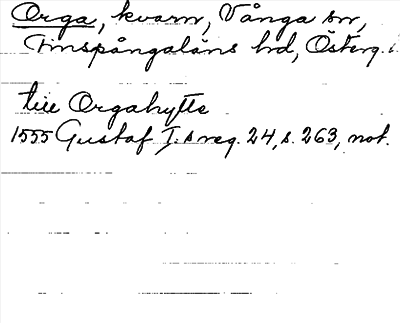 Orga, kvarn, Vånga sn,
Finspångaläns hd, Österg.
till Orgahytte
1555 Gustaf I:s reg. 24, s. 263, not.